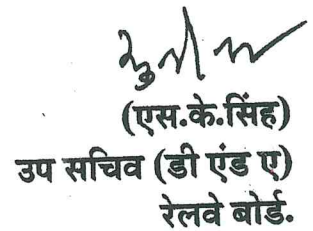 (एस.के.सिंह)
उप सचिव (डी एंड ए)
रेलवे बोर्ड.